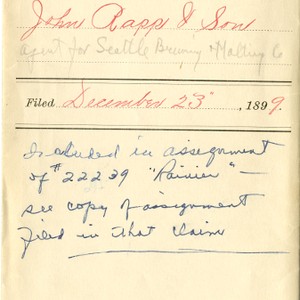 John Rapp & Son
agent for Seattle Brewing & Malting Co
Filed December 23", 1899.
Included in assignment
of #22239 "Rainier" —
see copy of assignment
filed in that claim